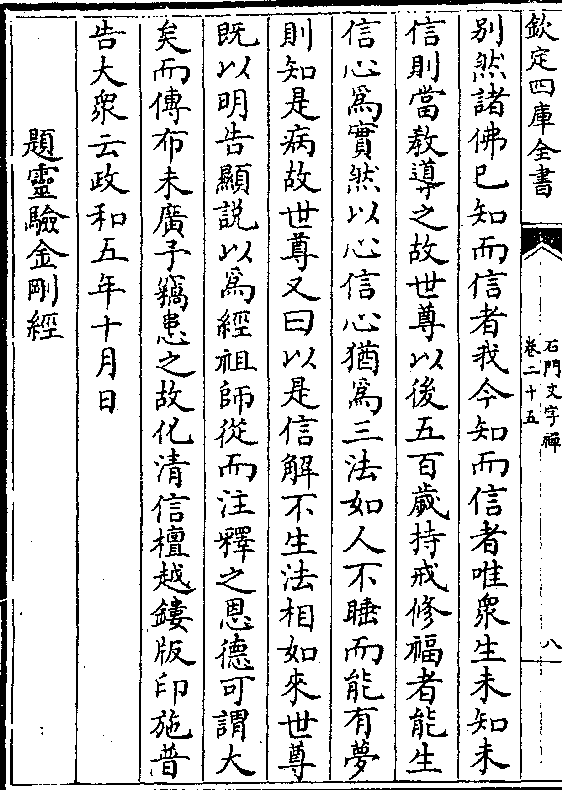 欽定四庫全書
石門文字禪
卷二十五
八
別然諸佛已知而信者我今知而信者唯衆生未知未
信則當教導之故世尊以後五百歲持戒修福者能生
信心爲實然以心信心猶爲三法如人不睡而能有夢
則知是病故世尊又曰以是信解不生法相如來世尊
既以明告顯説以爲經祖師從而注釋之恩德可謂大
矣而傳布未廣予竊患之故化清信檀越鏤版印施普
告大衆云政和五年十月日
題靈驗金剛經